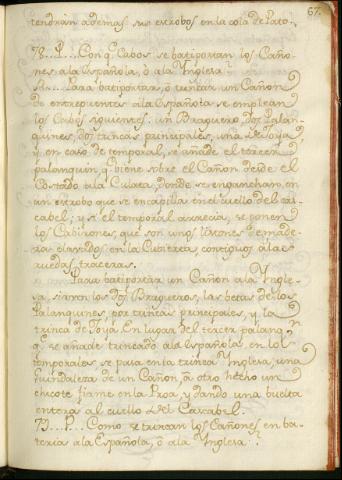 67.
tendràn ademas sus estrobos en la cola de Pato.
78....P.... Con q.e Cabos se batiportan los Caño-
nes ala Española, ò ala Ynglesa?
Para batiportar, ò trincar un Cañon
de entrepuentes ala Española se emplean
los Cabos siguientes: un Braguero, dos Palan-
quines, dos trincas principales, una de Joya,
y en caso de temporal, se añade el tercer
palanquin, q.e biene sobre el Cañon desde el
Costado ala Culata, donde se enganchan, en
un estrobo que se encapilla en el cuello del cas-
cabel; y si el temporal arrecia, se ponen
los Cabirones, que son unos tixones de made-
ra clavados en la Cubierta, contiguos àlas
ruedas traceras.
Para batiportàr un Cañon ala Yngle-
sa, sirven los dos Bragueros, las betas de los
Palanquines, por trincas principales, y la
trinca de Joya. En lugar del tercer palanq.n
q.e se añade trincado ala Española, en los
temporales se pasa en la trinca Ynglesa, una
Guindaleza de un Cañon, à otro hecho un
chicote firme en la Proa, y dando una buelta
entera al cuello del Cascabel.
79....P.... Como se trincan los Cañones en ba-
teria ala Española, ò ala Ynglesa?